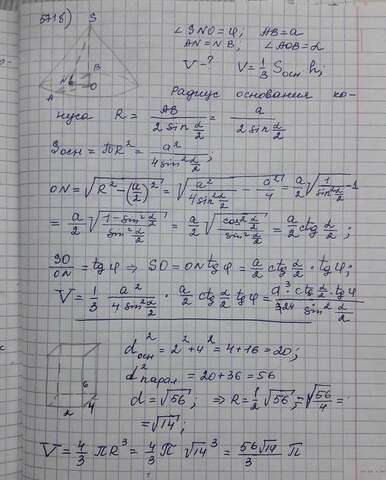 ∠SNO=φ, AB=a
871б) AN=NB, ∠AOB=α
V-? V=1/3 Sосн h;
S
A
N
B
O
Радиус основания ко-
нуса R = AB/(2sin α/2) = a/(2sin α/2)
Sосн = πR² = a²/(4sin² α/2);
ON = √(R² - (a/2)²) = √(a²/(4sin² α/2) - a²/4) = a/2 √(1/(sin² α/2) - 1
= a/2 √((1-sin² α/2)/(sin² α/2)) = a/2 √((cos² α/2)/(sin² α/2)) = a/2 ctg α/2;
SO/ON = tgφ ⇒ SO = ON tgφ = a/2 ctg α/2 · tgφ;
V = 1/3 · a²/(4sin² α/2) · a/2 ctg α/2 tgφ = a³ ctg α/2 · tgφ / 24 sin² α/2
d²осн = 2²+4² = 4+16 = 20;
d²парал = 20+36 = 56
d = √56; ⇒ R = 1/2 √56; = √(56/4) =
2
4
6
= √14;
V = 4/3 πR³ = 4/3 π √14³ = 56√14/3 π